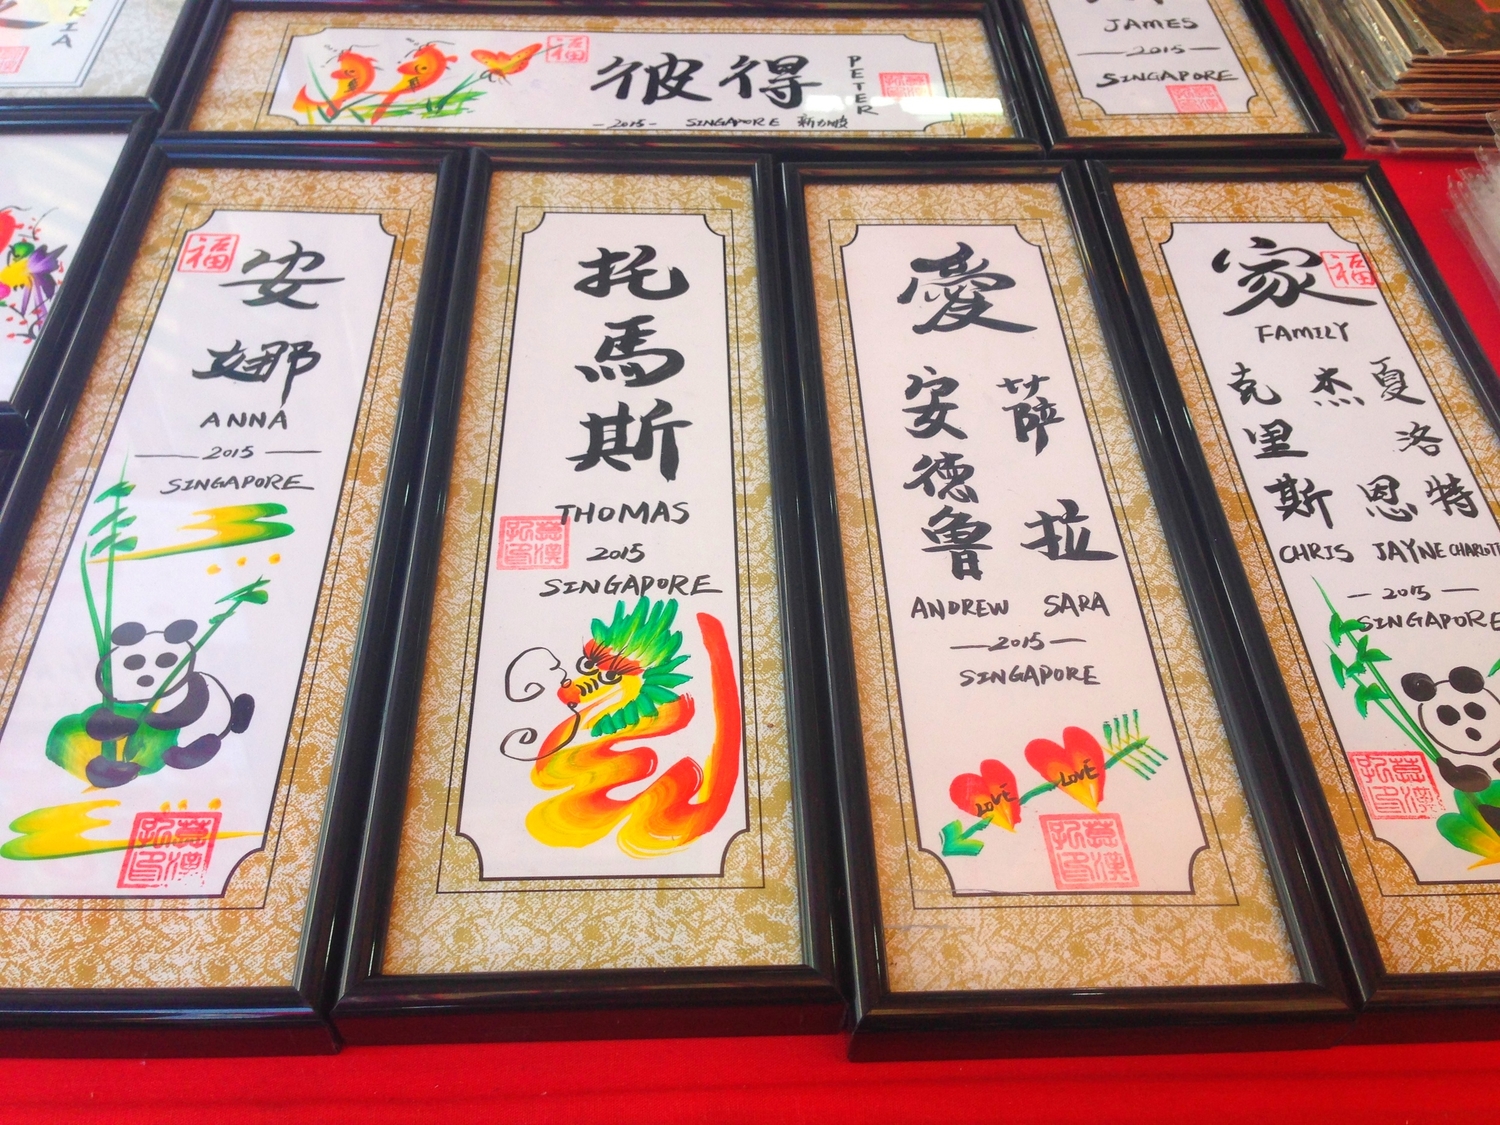 RIA
福
彼得
PETER
-2015- SINGAPORE 新加坡
JAMES
—2015—
SINGAPORE
福
安
娜
ANNA
—2015—
SINGAPORE
托
馬
斯
THOMAS
2015
SINGAPORE
愛
安德魯
薩拉
ANDREW SARA
—2015—
SINGAPORE
LOVE
LOVE
家
福
FAMILY
克里斯
杰恩
夏洛特
CHRIS JAYNE CHARLOTT
—2015—
SINGAPORE